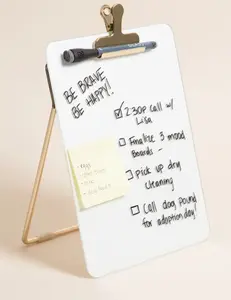 BE BRAVE
BE HAPPY!
☑ 2:30p call w/
Lisa
☐ Finalize 3 mood
Boards -
☐ Pick up dry
cleaning
☐ Call dog pound
for adoption day!